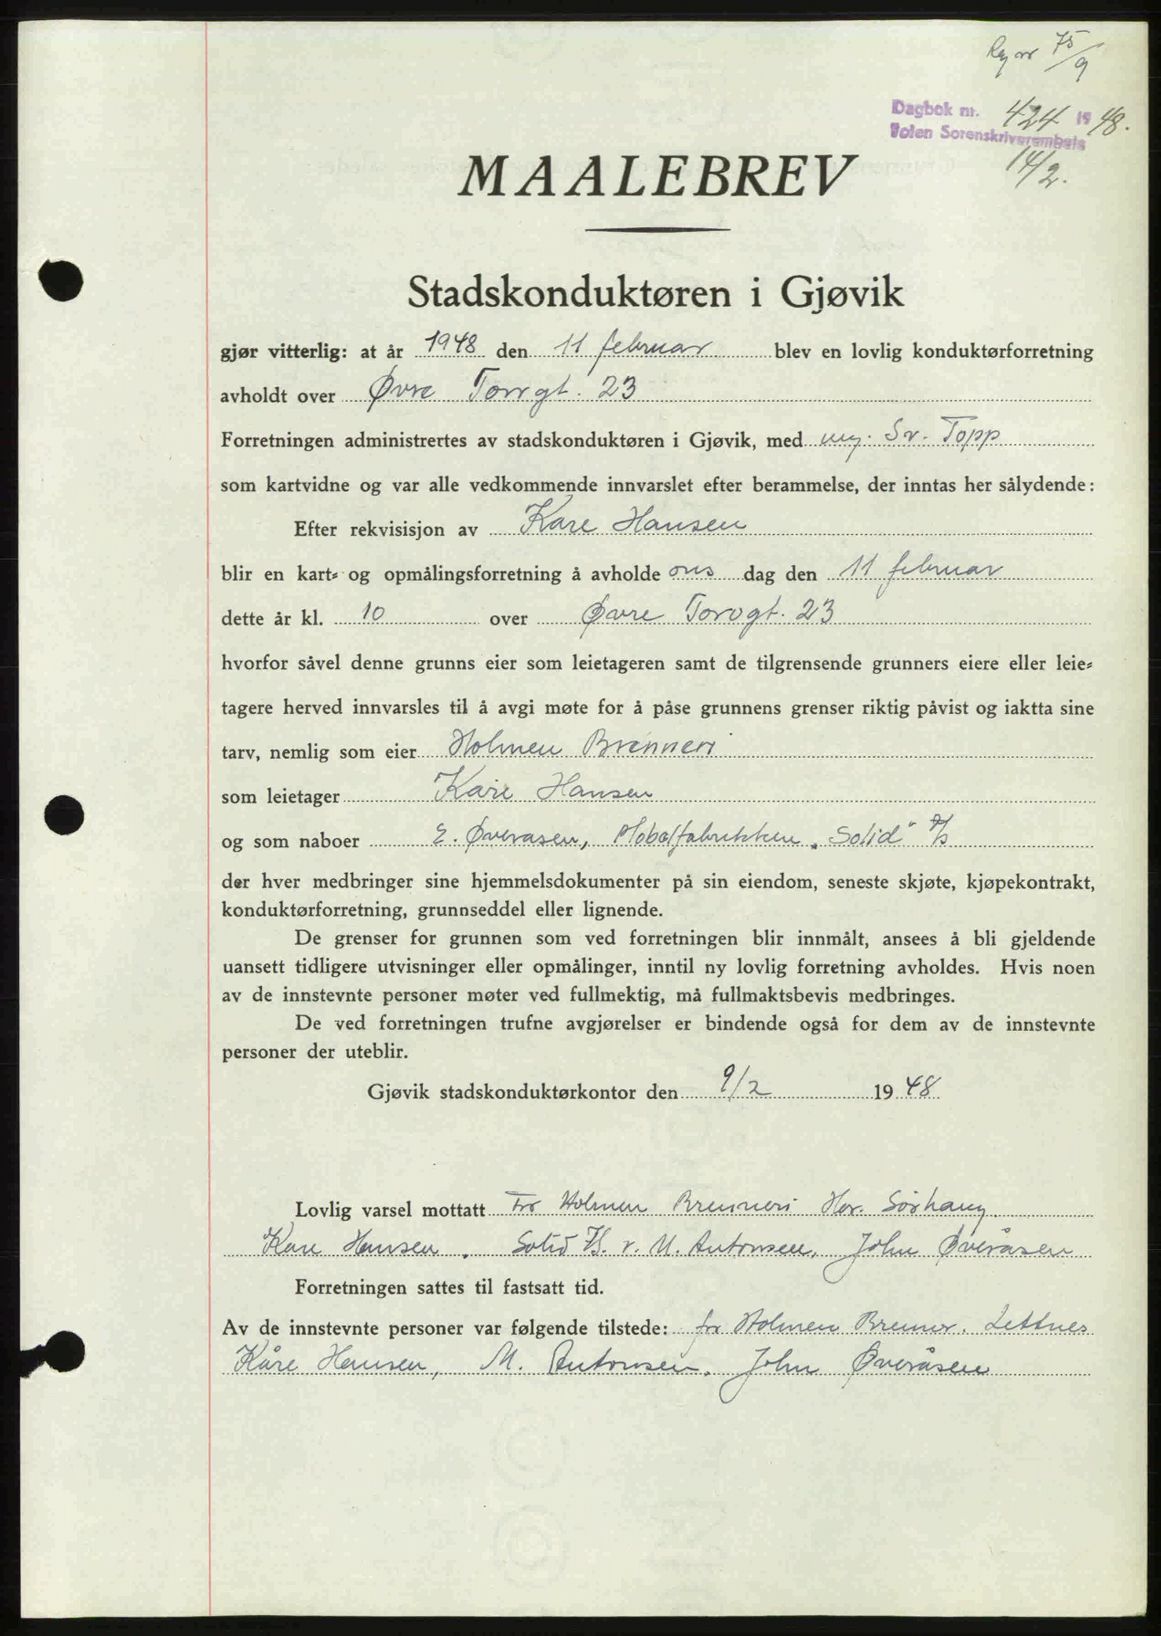 Reg nr 75/9
Dagbok nr. 424 1948.
Toten Sorenskriverembete
14/2.
MAALEBREV
Stadskonduktøren i Gjøvik
gjør vitterlig: at år 1948 den 11 februar blev en lovlig konduktørforretning
avholdt over Øvre Torvgt. 23
Forretningen administrertes av stadskonduktøren i Gjøvik, med ing. Sv. Topp
som kartvidne og var alle vedkommende innvarslet efter berammelse, der inntas her sålydende:
Efter rekvisisjon av Kåre Hansen
blir en kart- og opmålingsforretning å avholde ons dag den 11 februar
dette år kl. 10 over Øvre Torvgt. 23
hvorfor såvel denne grunns eier som leietageren samt de tilgrensende grunners eiere eller leie-
tagere herved innvarsles til å avgi møte for å påse grunnens grenser riktig påvist og iaktta sine
tarv, nemlig som eier Holmen Brenneri
som leietager Kåre Hansen
og som naboer E. Øveraasen, Møbelfabrikken „Solid" A/S
der hver medbringer sine hjemmelsdokumenter på sin eiendom, seneste skjøte, kjøpekontrakt,
konduktørforretning, grunnseddel eller lignende.
De grenser for grunnen som ved forretningen blir innmålt, ansees å bli gjeldende
uansett tidligere utvisninger eller opmålinger, inntil ny lovlig forretning avholdes. Hvis noen
av de innstevnte personer møter ved fullmektig, må fullmaktsbevis medbringes.
De ved forretningen trufne avgjørelser er bindende også for dem av de innstevnte
personer der uteblir.
Gjøvik stadskonduktørkontor den 9/2 1948
Lovlig varsel mottatt For Holmen Brenneri Har. Sørhaug.
Kåre Hansen, Solid A/S. v. M. Antonsen, John Øveråsen
Forretningen sattes til fastsatt tid.
Av de innstevnte personer var følgende tilstede: for Holmen Brenner. Lettnes
Kåre Hansen, M. Antonsen, John Øveråsen